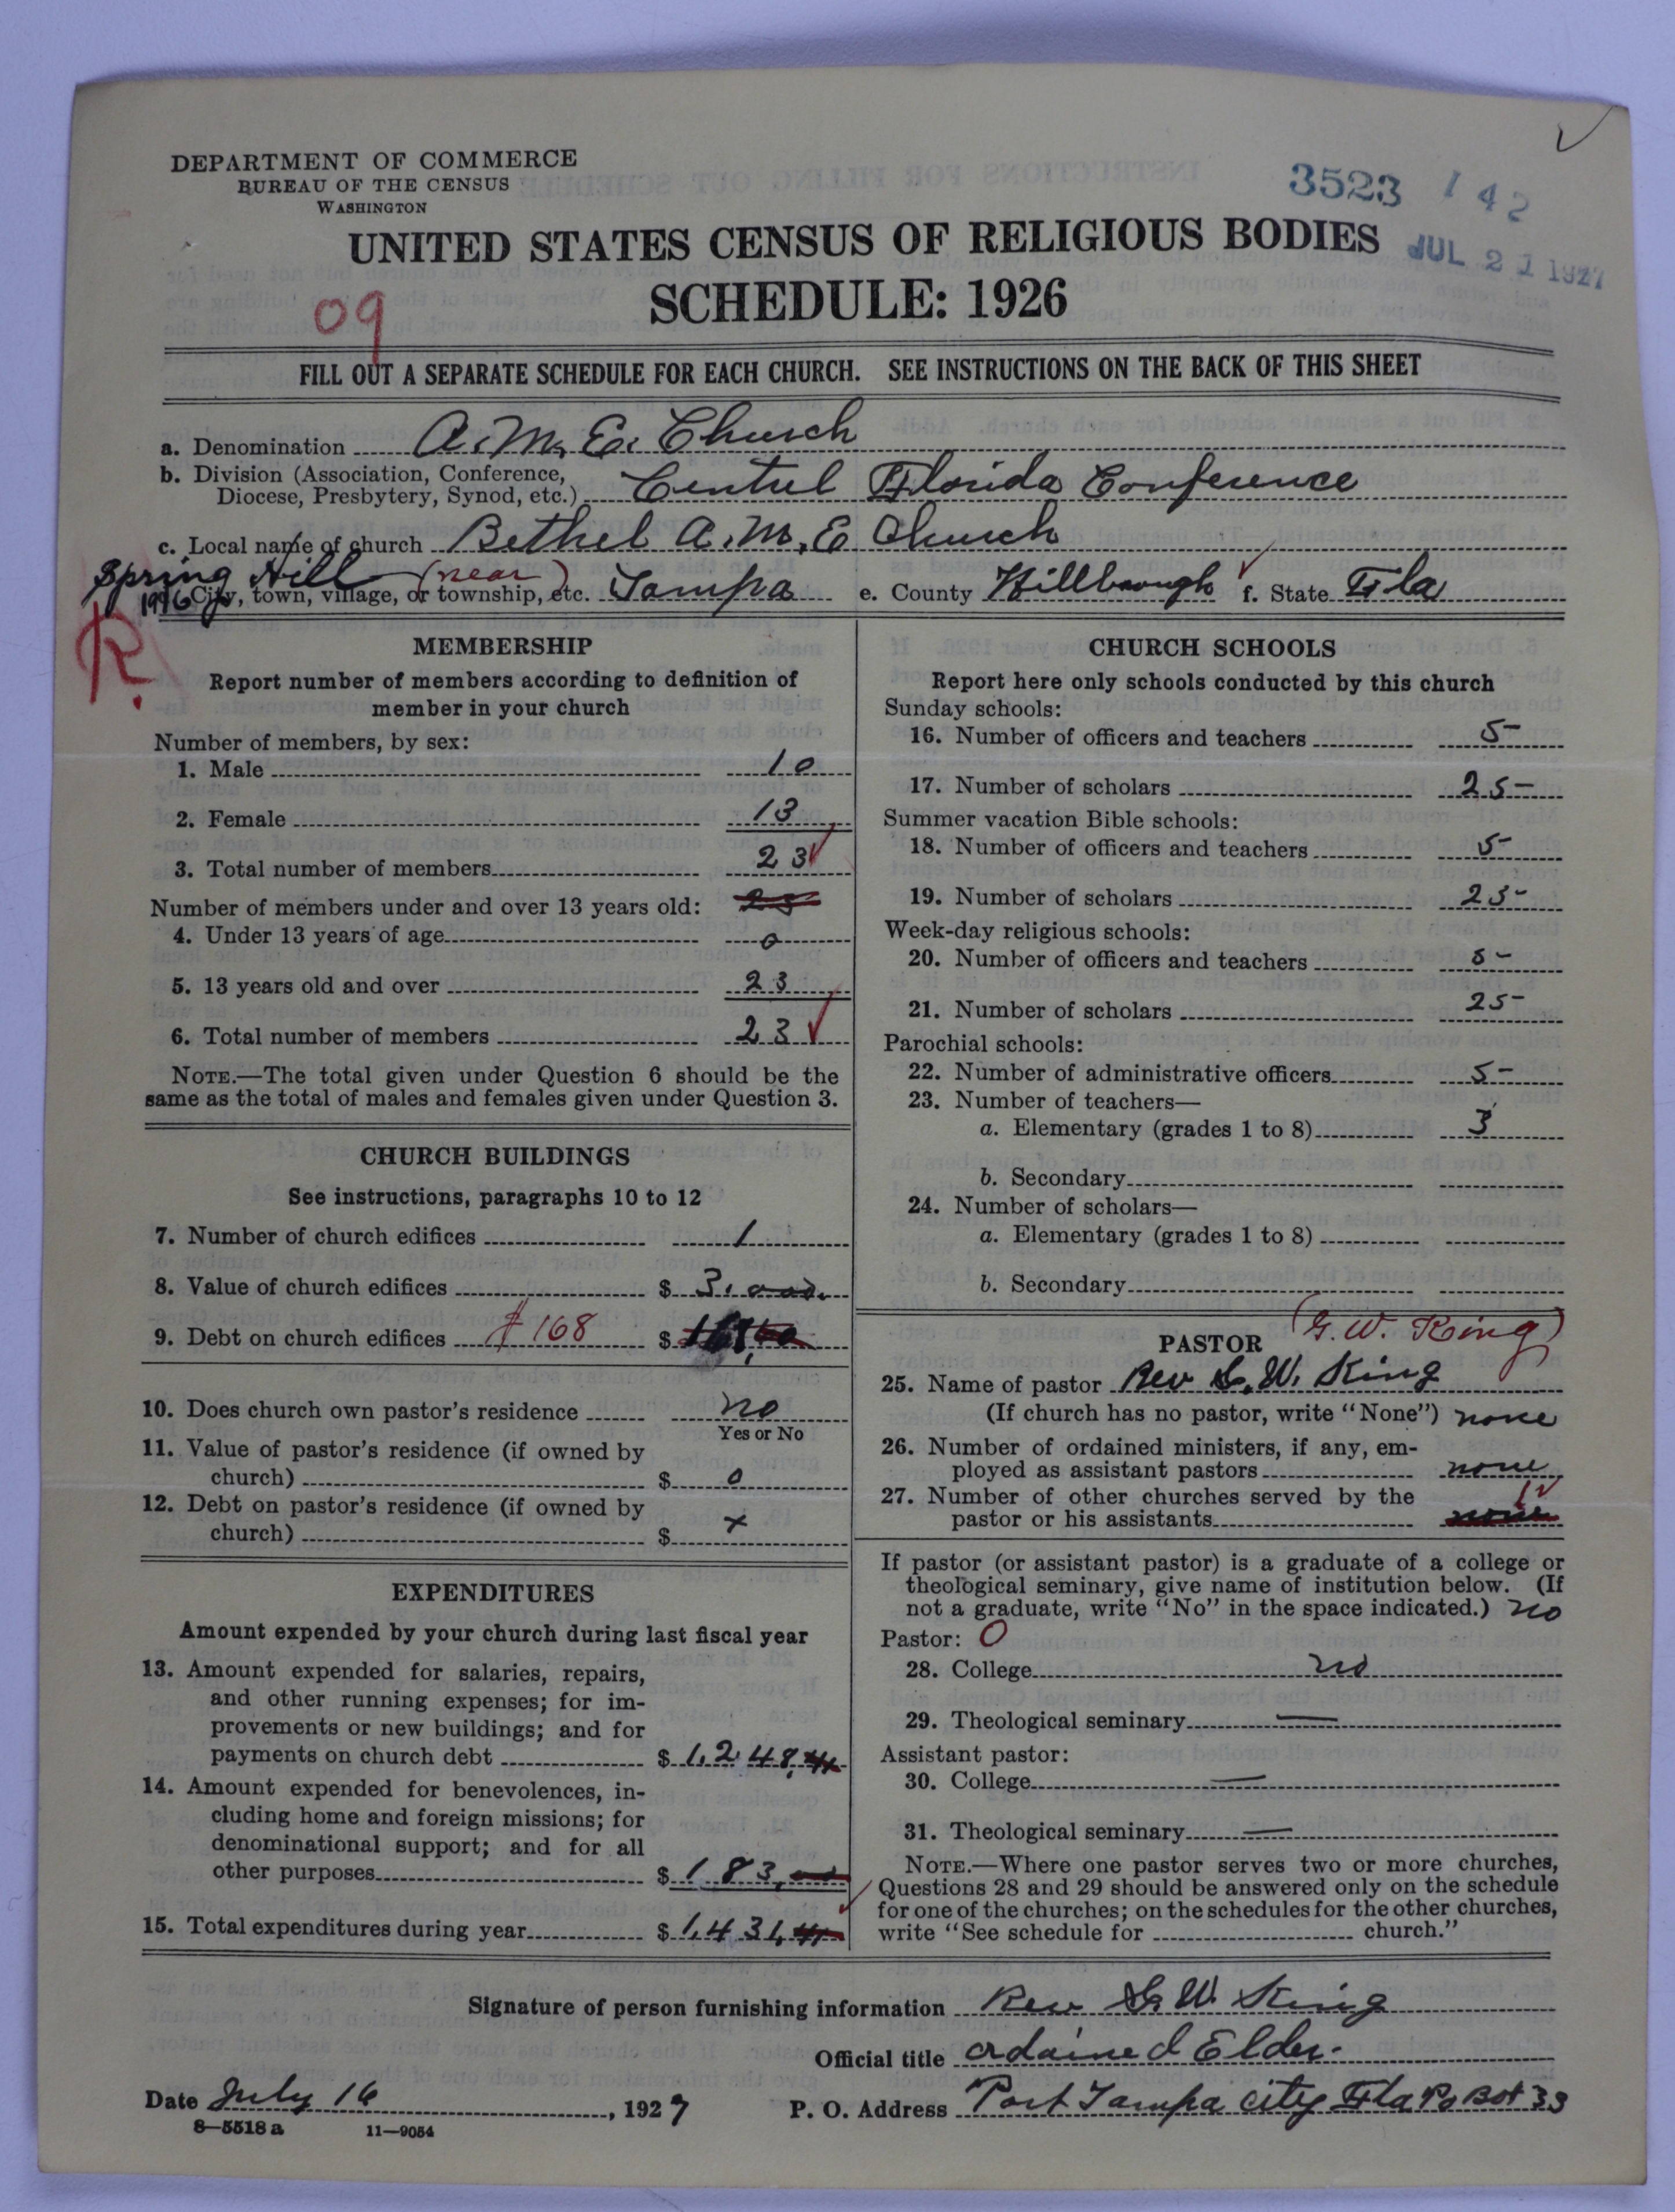 DEPARTMENT OF COMMERCE
BUREAU OF THE CENSUS
WASHINGTON
3523 142
UNITED STATES CENSUS OF RELIGIOUS BODIES
JUL 21 1927
SCHEDULE: 1926
09
FILL OUT A SEPARATE SCHEDULE FOR EACH CHURCH. SEE INSTRUCTIONS ON THE BACK OF THIS SHEET
a. Denomination A. M. E. Church
b. Division (Association, Conference,
Diocese, Presbytery, Synod, etc.) Centrel Florida Conference
c. Local name of church Bethel A. M. E Church
Spring Hill (near)
City, town, village, or township, etc. Tampa e. County Hillbough f. State Fla
R.
MEMBERSHIP
Report number of members according to definition of
member in your church
Number of members, by sex:
1. Male 10
2. Female 13
3. Total number of members 23
Number of members under and over 13 years old:
4. Under 13 years of age 0
5. 13 years old and over 23
6. Total number of members 23
NOTE.—The total given under Question 6 should be the
same as the total of males and females given under Question 3.
CHURCH BUILDINGS
See instructions, paragraphs 10 to 12
7. Number of church edifices 1
8. Value of church edifices $ 3,000.
9. Debt on church edifices $168 $
10. Does church own pastor's residence no
Yes or No
11. Value of pastor's residence (if owned by
church) $ 0
12. Debt on pastor's residence (if owned by
church) $ x
EXPENDITURES
Amount expended by your church during last fiscal year
13. Amount expended for salaries, repairs,
and other running expenses; for im-
provements or new buildings; and for
payments on church debt $ 1,248.
14. Amount expended for benevolences, in-
cluding home and foreign missions; for
denominational support; and for all
other purposes $ 183.
15. Total expenditures during year $ 1,431.
CHURCH SCHOOLS
Report here only schools conducted by this church
Sunday schools:
16. Number of officers and teachers 5-
17. Number of scholars 25-
Summer vacation Bible schools:
18. Number of officers and teachers 5-
19. Number of scholars 25-
Week-day religious schools:
20. Number of officers and teachers 5-
21. Number of scholars 25-
Parochial schools:
22. Number of administrative officers 5-
23. Number of teachers—
a. Elementary (grades 1 to 8) 3
b. Secondary
24. Number of scholars—
a. Elementary (grades 1 to 8)
b. Secondary
PASTOR (G. W. King)
25. Name of pastor Rev G. W. King
(If church has no pastor, write "None") none
26. Number of ordained ministers, if any, em-
ployed as assistant pastors none
27. Number of other churches served by the 1
pastor or his assistants none
If pastor (or assistant pastor) is a graduate of a college or
theological seminary, give name of institution below. (If
not a graduate, write "No" in the space indicated.) no
Pastor: O
28. College no
29. Theological seminary —
Assistant pastor:
30. College —
31. Theological seminary —
NOTE.—Where one pastor serves two or more churches,
Questions 28 and 29 should be answered only on the schedule
for one of the churches; on the schedules for the other churches,
write "See schedule for church."
Signature of person furnishing information Rev G. W. King
Official title ordained Elder.
Date July 16, 1927 P. O. Address Port Tampa city Fla Po Box 33
8—5518 a 11—9054